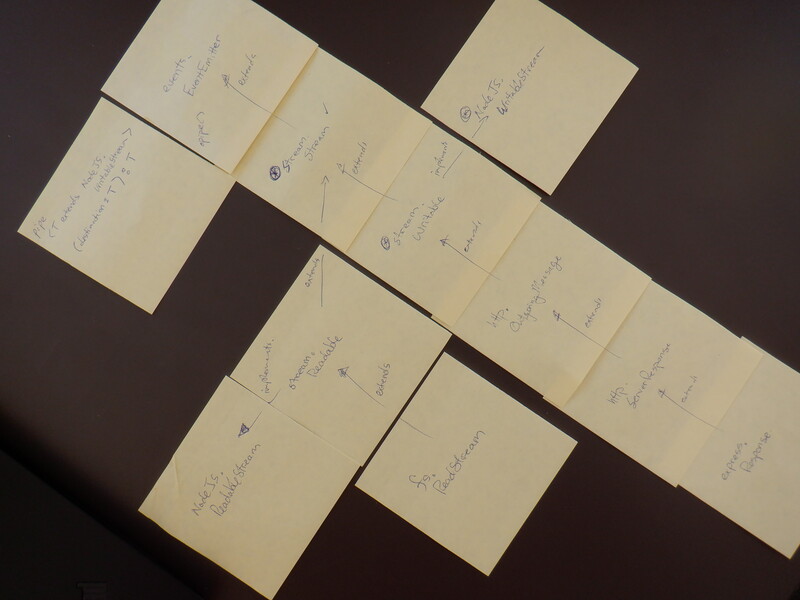 events.
EventEmitter
extends
pipe?
pipe
<T extends NodeJS.
WritableStream>
(destination: T): T
stream.
Stream
extends
NodeJS.
WritableStream
implements
stream.
Writable
extends
http.
OutgoingMessage
extends
http.
ServerResponse
extends
express.
Response
extends
stream.
Readable
extends
implements.
NodeJS.
ReadableStream
fs.
ReadStream